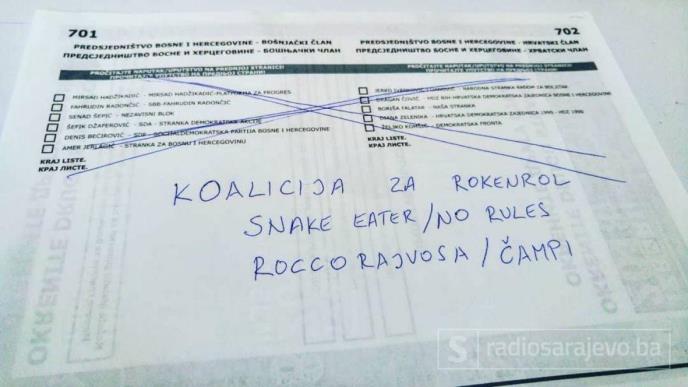 701
702
PREDSJEDNIŠTVO BOSNE I HERCEGOVINE - BOŠNJAČKI ČLAN
ПРЕДСЈЕДНИШТВО БОСНЕ И ХЕРЦЕГОВИНЕ - БОШЊАЧКИ ЧЛАН
PREDSJEDNIŠTVO BOSNE I HERCEGOVINE - HRVATSKI ČLAN
ПРЕДСЈЕДНИШТВО БОСНЕ И ХЕРЦЕГОВИНЕ - ХРВАТСКИ ЧЛАН
PROČITAJTE NAPUTAK/UPUTSTVO NA PREDNJOJ STRANICI!
ПРОЧИТАЈТЕ УПУТСТВО НА ПРЕДЊОЈ СТРАНИ!
PROČITAJTE NAPUTAK/UPUTSTVO NA PREDNJOJ STRANICI!
MIRSAD HADŽIKADIĆ - MIRSAD HADŽIKADIĆ-PLATFORMA ZA PROGRES
FAHRUDIN RADONČIĆ - SBB-FAHRUDIN RADONČIĆ
SENAD ŠEPIĆ - NEZAVISNI BLOK
ŠEFIK DŽAFEROVIĆ - SDA - STRANKA DEMOKRATSKE AKCIJE
DENIS BEĆIROVIĆ - SDP - SOCIJALDEMOKRATSKA PARTIJA BOSNE I HERCEGOVINE
AMER JERLAGIĆ - STRANKA ZA BOSNU I HERCEGOVINU
KRAJ LISTE.
КРАЈ ЛИСТЕ.
NARODNA STRANKA RADOM ZA BOLJITAK
DRAGAN ČOVIĆ - HDZ BIH-HRVATSKA DEMOKRATSKA ZAJEDNICA BOSNE I HERCEGOVINE
BORIŠA FALATAR - NAŠA STRANKA
DIANA ZELENIKA - HRVATSKA DEMOKRATSKA ZAJEDNICA 1990 - HDZ 1990
ŽELJKO KOMŠIĆ - DEMOKRATSKA FRONTA
KRAJ LISTE.
КРАЈ ЛИСТЕ.
KOALICIJA ZA ROKENROL
SNAKE EATER/NO RULES
ROCCO RAJVOSA/ČAMPI
OKRENITE
S radiosarajevo.ba